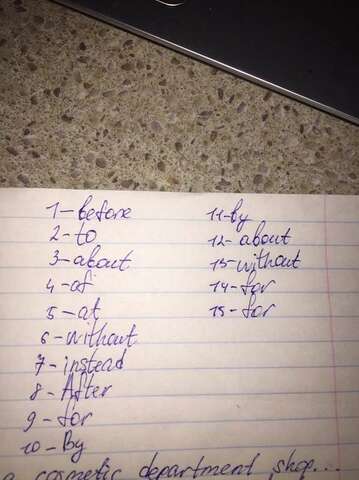 1-before
2-to
3-about
4-of
5-at
6-without
7-instead
8-After
9-for
10-By
11-by
12-about
13-without
14-for
15-for
cosmetic department shop...